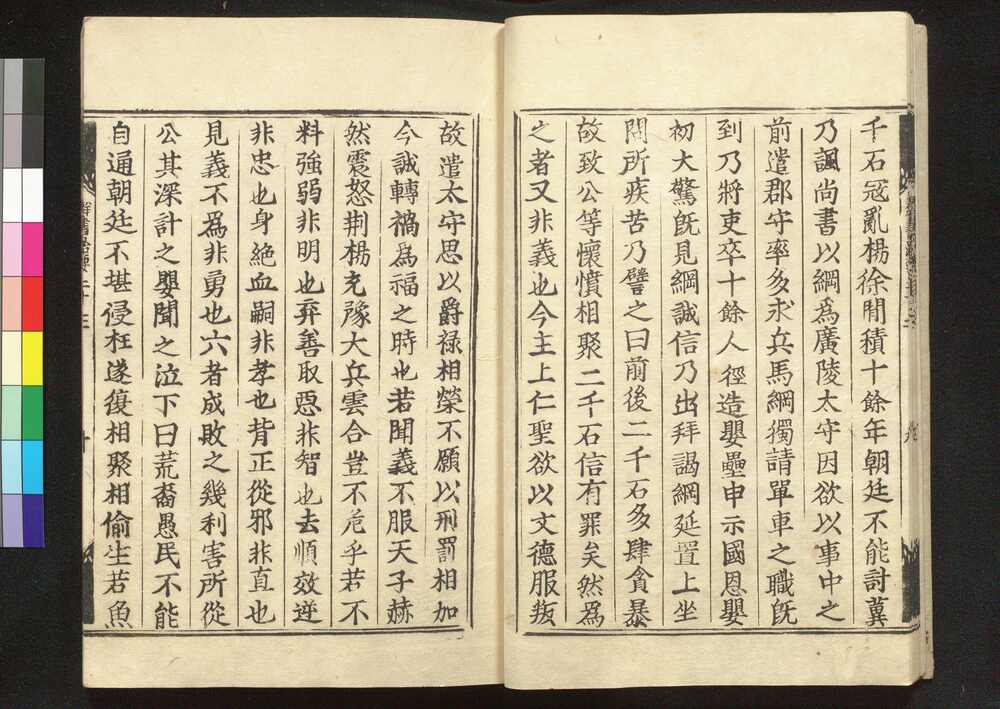 千石冦亂楊徐閒積十餘年朝廷不能討冀
乃諷尚書以綱爲廣陵太守因欲以事中之
前遣郡守率多求兵馬綱獨請單車之職旣
到乃將吏卒十餘人徑造嬰壘申示國恩嬰
初大驚旣見綱誠信乃出拜謁綱延置上坐
問所疾苦乃譬之曰前後二千石多肆貪暴
故致公等懷憤相聚二千石信有罪矣然爲
之者又非義也今主上仁聖欲以文德服叛
故遣太守思以爵禄相榮不願以刑罰相加
今誠轉禍爲福之時也若聞義不服天子赫
然震怒荆楊兗豫大兵雲合豈不危乎若不
料強弱非明也弃善取惡非智也去順效逆
非忠也身絶血嗣非孝也背正從邪非直也
見義不爲非勇也六者成敗之幾利害所從
公其深計之嬰聞之泣下曰荒裔愚民不能
自通朝廷不堪侵枉遂復相聚相偷生若魚
群書治要二十三
十